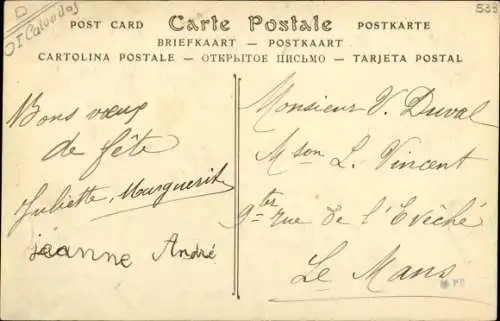 D
51 Calvados
533
POST CARD Carte Postale POSTKARTE
BRIEFKAART — POSTKAART
CARTOLINA POSTALE — ОТКРЫТОЕ ПИСЬМО — TARJETA POSTAL
Bons vœux
de fête
Juliette, Marguerite
jeanne André
Monsieur V. Duval
Mson L. Vincent
9ter rue de l'Evêché
Le Mans